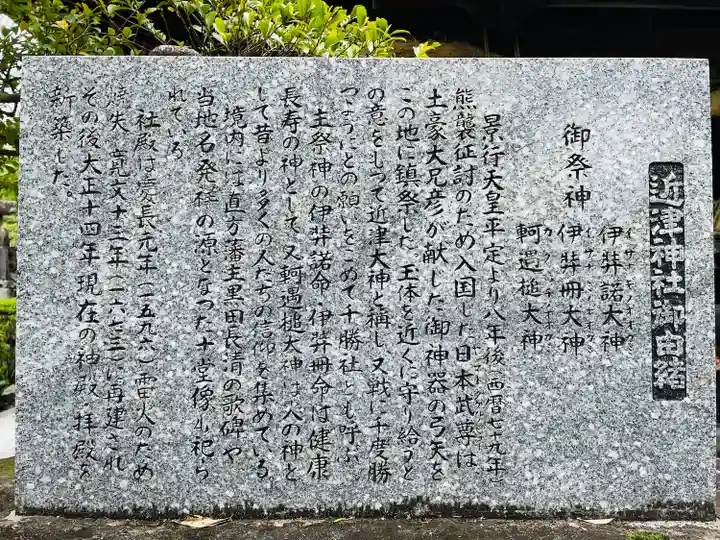 近津神社御由緒
御祭神
伊弉諾大神
イザナギノオオカミ
伊弉冊大神
軻遇槌大神
景行天皇平定より八年後(西暦七十九年)
熊襲征討のため入国した日本武尊は
土豪大兄彦が献した御神器の弓矢を
この地に鎮祭した。玉体を近くに守り給うと
の意をもつて近津大神と称し又戦に千度勝
つようにとの願いをこめて千勝社とも呼ぶ
主祭神の伊弉諾命・伊弉冊命は健康
長寿の神として、又軻遇槌大神は火の神と
して昔より多くの人たちの信仰を集めている
境内には直方藩主黒田長清の歌碑や
当地名発祥の源となつた十堂像が祀ら
れている
社殿は慶長元年(一五九六)雷火のため
焼失 寛文十三年(一六七三)に再建され
その後大正十四年現在の神殿 拝殿を
新築した。